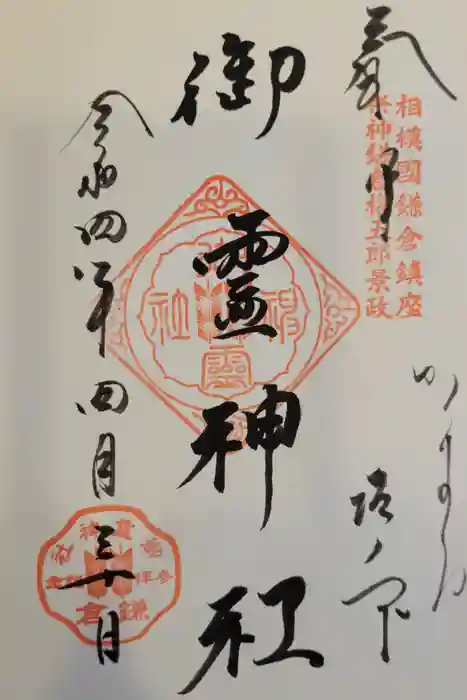 奉拝
相模國鎌倉鎮座
祭神鎌倉権五郎景政
かまくら
坂ノ下
御靈神社
令和四年四月三十日